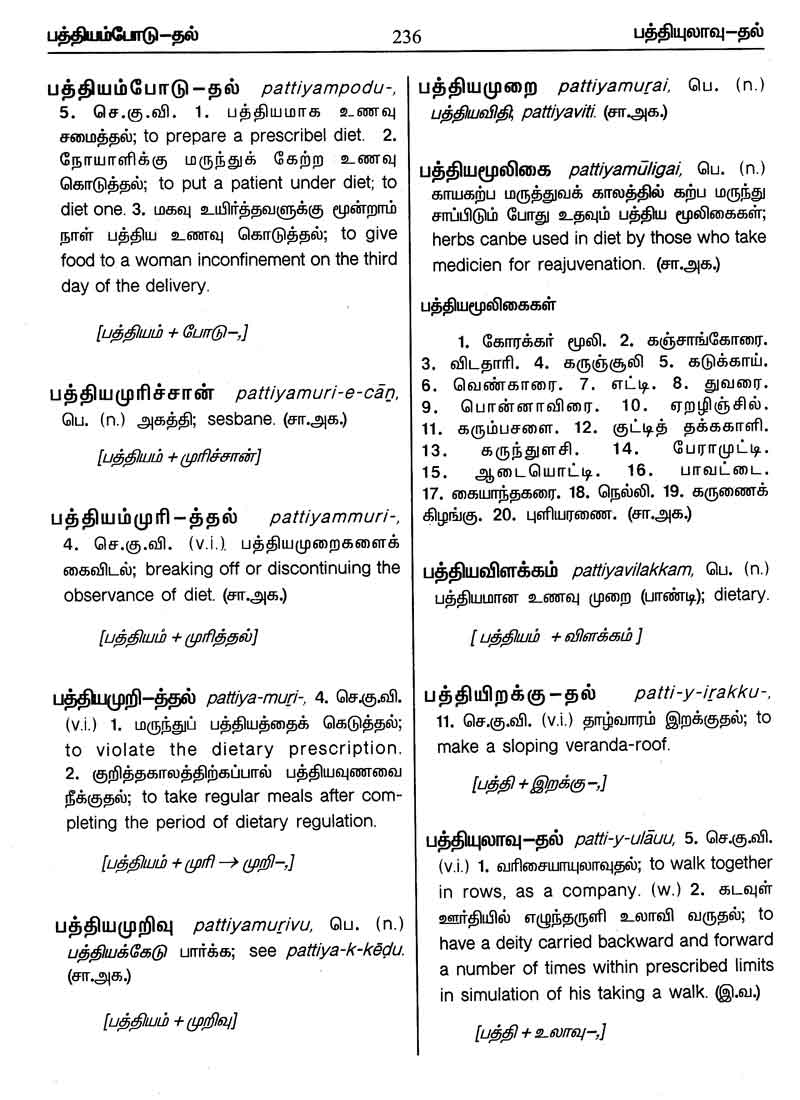 பத்தியம்போடு-தல்
236
பத்தியுலாவு-தல்
பத்தியம்போடு-தல் pattiyampodu-,
5. செ.கு.வி. 1. பத்தியமாக உணவு
சமைத்தல்; to prepare a prescribel diet. 2.
நோயாளிக்கு மருந்துக் கேற்ற உணவு
கொடுத்தல்; to put a patient under diet; to
diet one. 3. மகவு உயிர்த்தவளுக்கு மூன்றாம்
நாள் பத்திய உணவு கொடுத்தல்; to give
food to a woman inconfinement on the third
day of the delivery.
[பத்தியம் + போடு-,]
பத்தியமுரிச்சான் pattiyamuri-e-cāṉ,
பெ. (n.) அகத்தி; sesbane. (சா.அக.)
[பத்தியம் + முரிச்சான்]
பத்தியம்முரி-த்தல் pattiyammuri-,
4. செ.கு.வி. (v.i.) பத்தியமுறைகளைக்
கைவிடல்; breaking off or discontinuing the
observance of diet. (சா.அக.)
[பத்தியம் + முரித்தல்]
பத்தியமுறி-த்தல் pattiya-muṟi-, 4. செ.கு.வி.
(v.i.) 1. மருந்துப் பத்தியத்தைக் கெடுத்தல்;
to violate the dietary prescription.
2. குறித்தகாலத்திற்கப்பால் பத்தியவுணவை
நீக்குதல்; to take regular meals after com-
pleting the period of dietary regulation.
[பத்தியம் + முரி → முறி-,]
பத்தியமுறிவு pattiyamuṟivu, பெ. (n.)
பத்தியக்கேடு பார்க்க; see pattiya-k-kēḍu.
(சா.அக.)
[பத்தியம் + முறிவு]
பத்தியமுறை pattiyamuṟai, பெ. (n.)
பத்தியவிதி; pattiyaviti. (சா.அக.)
பத்தியமூலிகை pattiyamūligai, பெ. (n.)
காயகற்ப மருத்துவக் காலத்தில் கற்ப மருந்து
சாப்பிடும் போது உதவும் பத்திய மூலிகைகள்;
herbs canbe used in diet by those who take
medicien for reajuvenation. (சா.அக.)
பத்தியமூலிகைகள்
1. கோரக்கர் மூலி. 2. கஞ்சாங்கோரை.
3. விடதாரி. 4. கருஞ்சூலி 5. கடுக்காய்.
6. வெண்காரை. 7. எட்டி. 8. துவரை.
9. பொன்னாவிரை. 10. ஏறழிஞ்சில்.
11. கரும்பசளை. 12. குட்டித் தக்ககாளி.
13. கருந்துளசி. 14. பேராமுட்டி.
15. ஆடையொட்டி. 16. பாவட்டை.
17. கையாந்தகரை. 18. நெல்லி. 19. கருணைக்
கிழங்கு. 20. புளியரணை. (சா.அக.)
பத்தியவிளக்கம் pattiyavilakkam, பெ. (n.)
பத்தியமான உணவு முறை (பாண்டி); dietary.
[ பத்தியம் + விளக்கம் ]
பத்தியிறக்கு-தல் patti-y-iṟakku-,
11. செ.கு.வி. (v.i.) தாழ்வாரம் இறக்குதல்; to
make a sloping veranda-roof.
[பத்தி + இறக்கு-,]
பத்தியுலாவு-தல் patti-y-ulāuu, 5. செ.கு.வி.
(v.i.) 1. வரிசையாயுலாவுதல்; to walk together
in rows, as a company. (w.) 2. கடவுள்
ஊர்தியில் எழுந்தருளி உலாவி வருதல்; to
have a deity carried backward and forward
a number of times within prescribed limits
in simulation of his taking a walk. (இ.வ.)
[பத்தி + உலாவு-,]